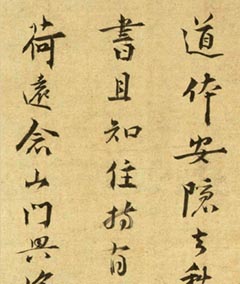 道体安隱去秋
書且知住持有
荷遠念山門興